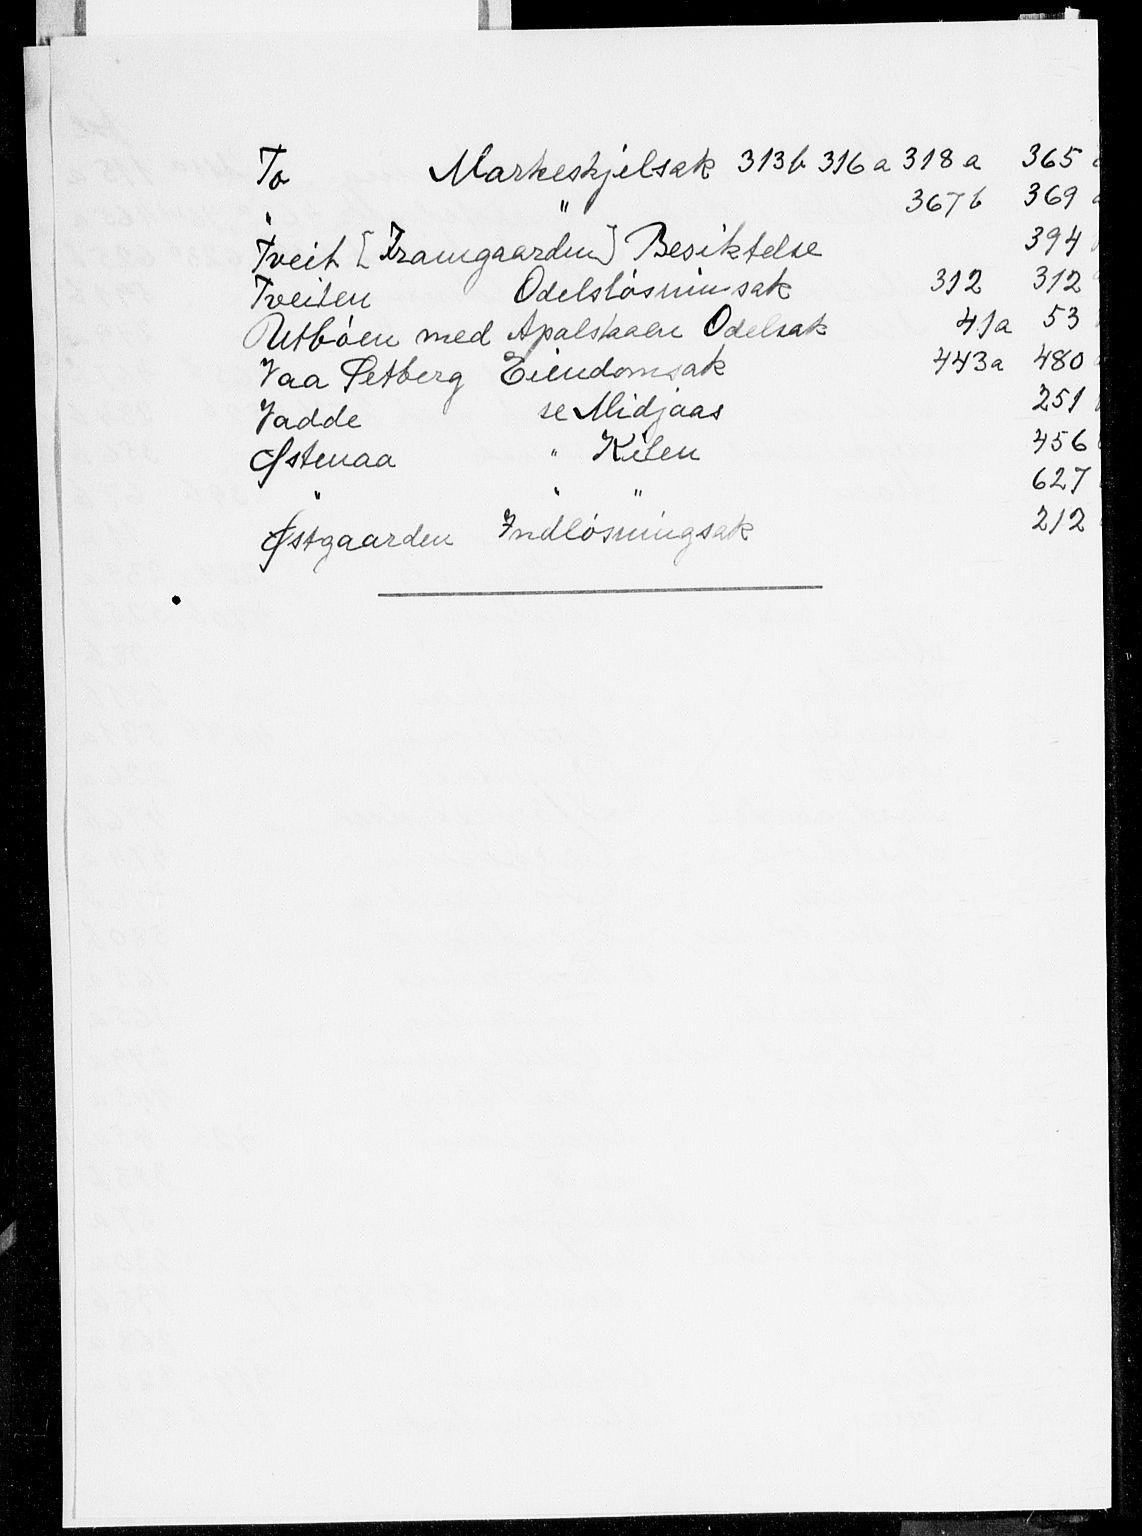 To Markeskjelsak 313b 316a 318a 365
" " 367b 369
Tveit [Framgaarden] Besiktelse 394
Tveiten Odelsløsninsak 312 312
Utbøen med Apalstaaen Odelsak 41a 53
Vaa Øetberg Eiendomsak 443a 480
Vadde se Midjaas 251
Østenaa " Kilen 456
" " " 627
Østgaarden Indløsningsak 212